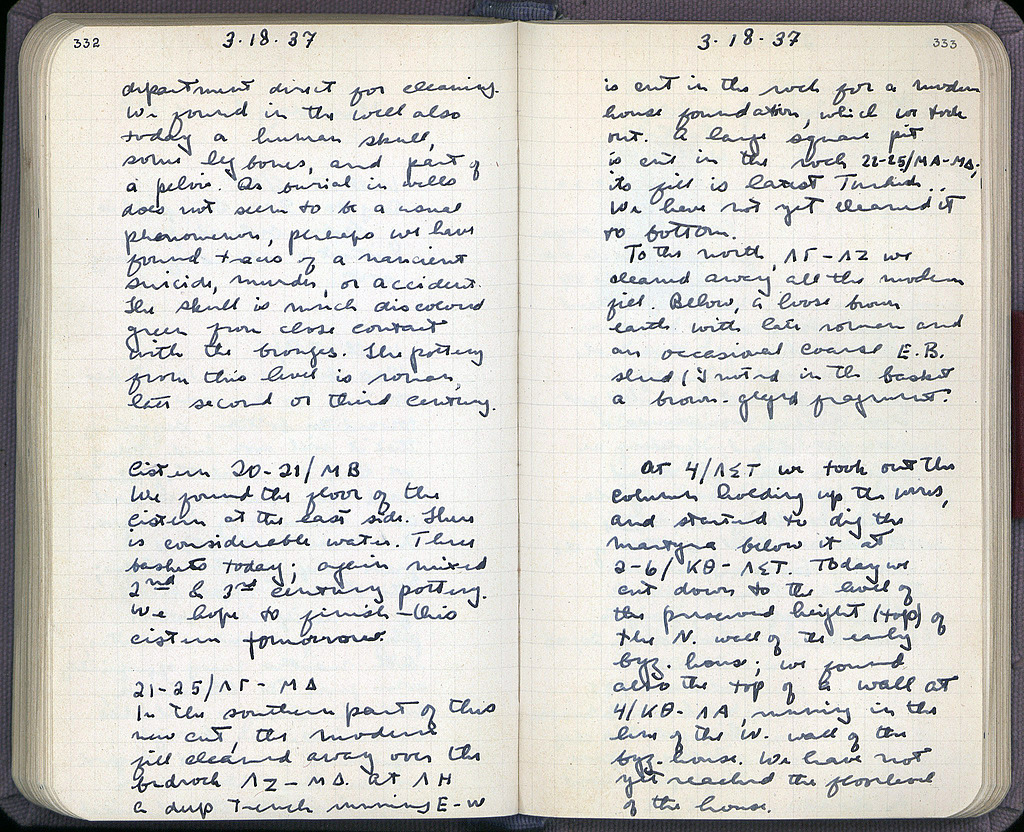 332
3·18·37
department direct for cleaning.
We found in the well also
today a human skull,
some leg bones, and part of
a pelvis. As burial in wells
does not seem to be a usual
phenomenon, perhaps we have
found traces of an ancient
suicide, murder, or accident.
The skull is much discolored
green from close contact
with the bronzes. The pottery
from this level is roman,
late second or third century.
Cistern 20-21/MB
We found the floor of the
cistern at the east side. There
is considerable water. Three
baskets today; again mixed
2nd & 3rd century pottery.
We hope to finish this
cistern tomorrow.
21-25/ΛΓ - ΜΔ
In the southern part of this
new cut, the modern
fill cleared away over the
bedrock ΛΖ - ΜΔ. At ΛΗ
a deep trench running E-W
333
3·18·37
is cut in the rock for a modern
house foundation, which we took
out. A large square pit
is cut in the rock 22-25/ΜΑ-ΜΔ;
its fill is latest Turkish..
We have not yet cleaned it
to bottom.
To the north, ΛΓ - ΛΖ we
cleared away all the modern
fill. Below, a loose brown
earth with late roman and
an occasional coarse E.B.
sherd (I noted in the basket
a brown-glazed fragment.
At 4/ΛΣΤ we took out the
column holding up the wires,
and started to dig the
martyra below it at
2-6/ΚΘ - ΛΣΤ. Today we
cut down to the level of
the preserved height (top) of
the N. wall of the early
byz. house; we found
also the top of a wall at
4/ΚΘ- ΛΑ, running in the
line of the W. wall of the
byz. house. We have not
yet reached the floor level
of the house.